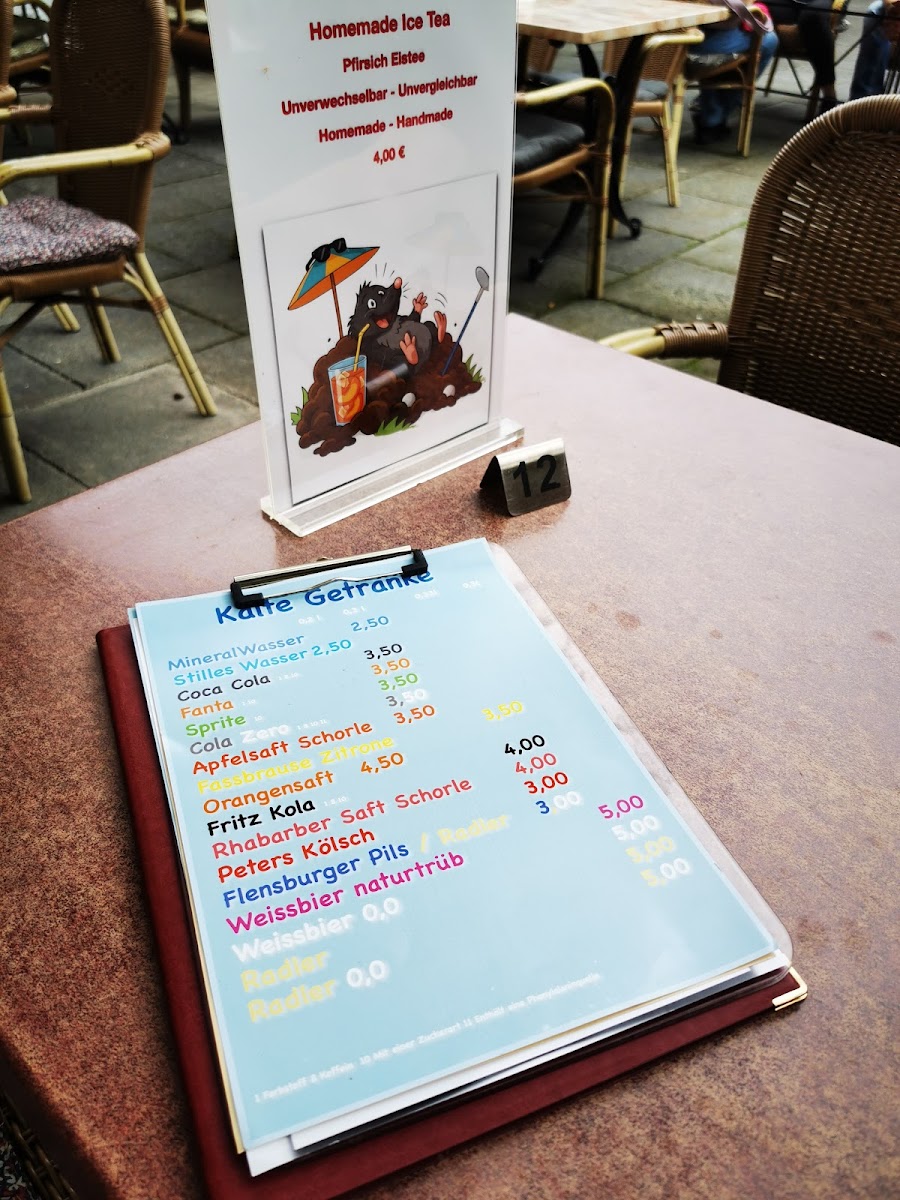 Homemade Ice Tea
Pfirsich Eistee
Unverwechselbar - Unvergleichbar
Homemade - Handmade
4,00 €
12
Kalte Getränke
MineralWasser 2,50
Stilles Wasser 2,50
Coca Cola 3,50
Fanta 3,50
Sprite 3,50
Cola Zero 3,50
Apfelsaft Schorle 3,50
Fassbrause Zitrone 3,50
Orangensaft 4,50
Fritz Kola 4,00
Rhabarber Saft Schorle 4,00
Peters Kölsch 3,00
Flensburger Pils / Radler 3,00
Weissbier naturtrüb 5,00
Weissbier 0,0 5,00
Radler 5,00
Radler 0,0 5,00
1 Farbstoff 8 Koffein 10 Mit einer Zuckerart 11 Enthält eine